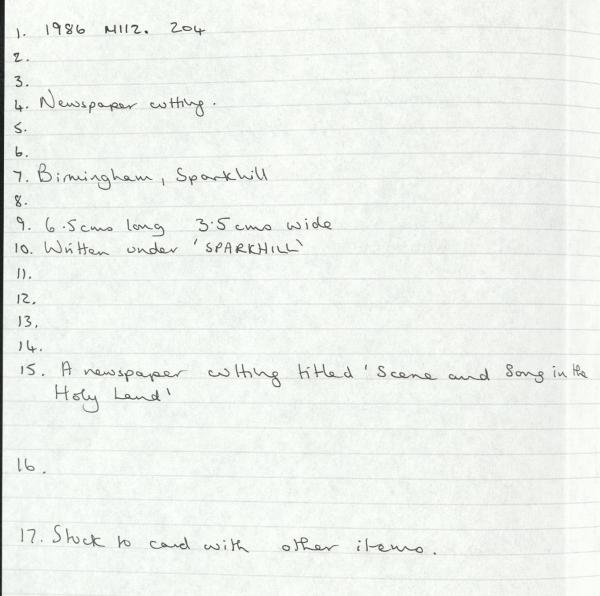 1. 1986 M112. 204
2.
3.
4. Newspaper cutting.
5.
6.
7. Birmingham, Sparkhill
8.
9. 6.5cms long 3.5cms wide
10. Written under 'SPARKHILL'
11.
12.
13.
14.
15. A newspaper cutting titled 'Scene and Song in the
Holy Land'
16.
17. Stuck to card with other items.